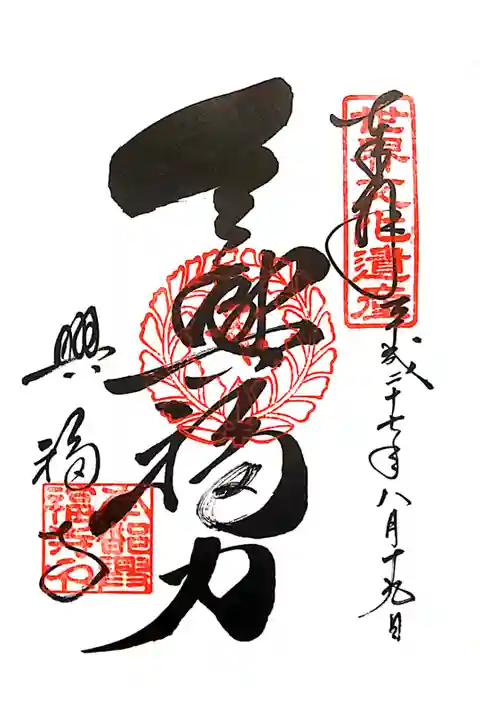 世界文化遺産
奉拝 平成二十七年八月十九日
令興福力
興福寺